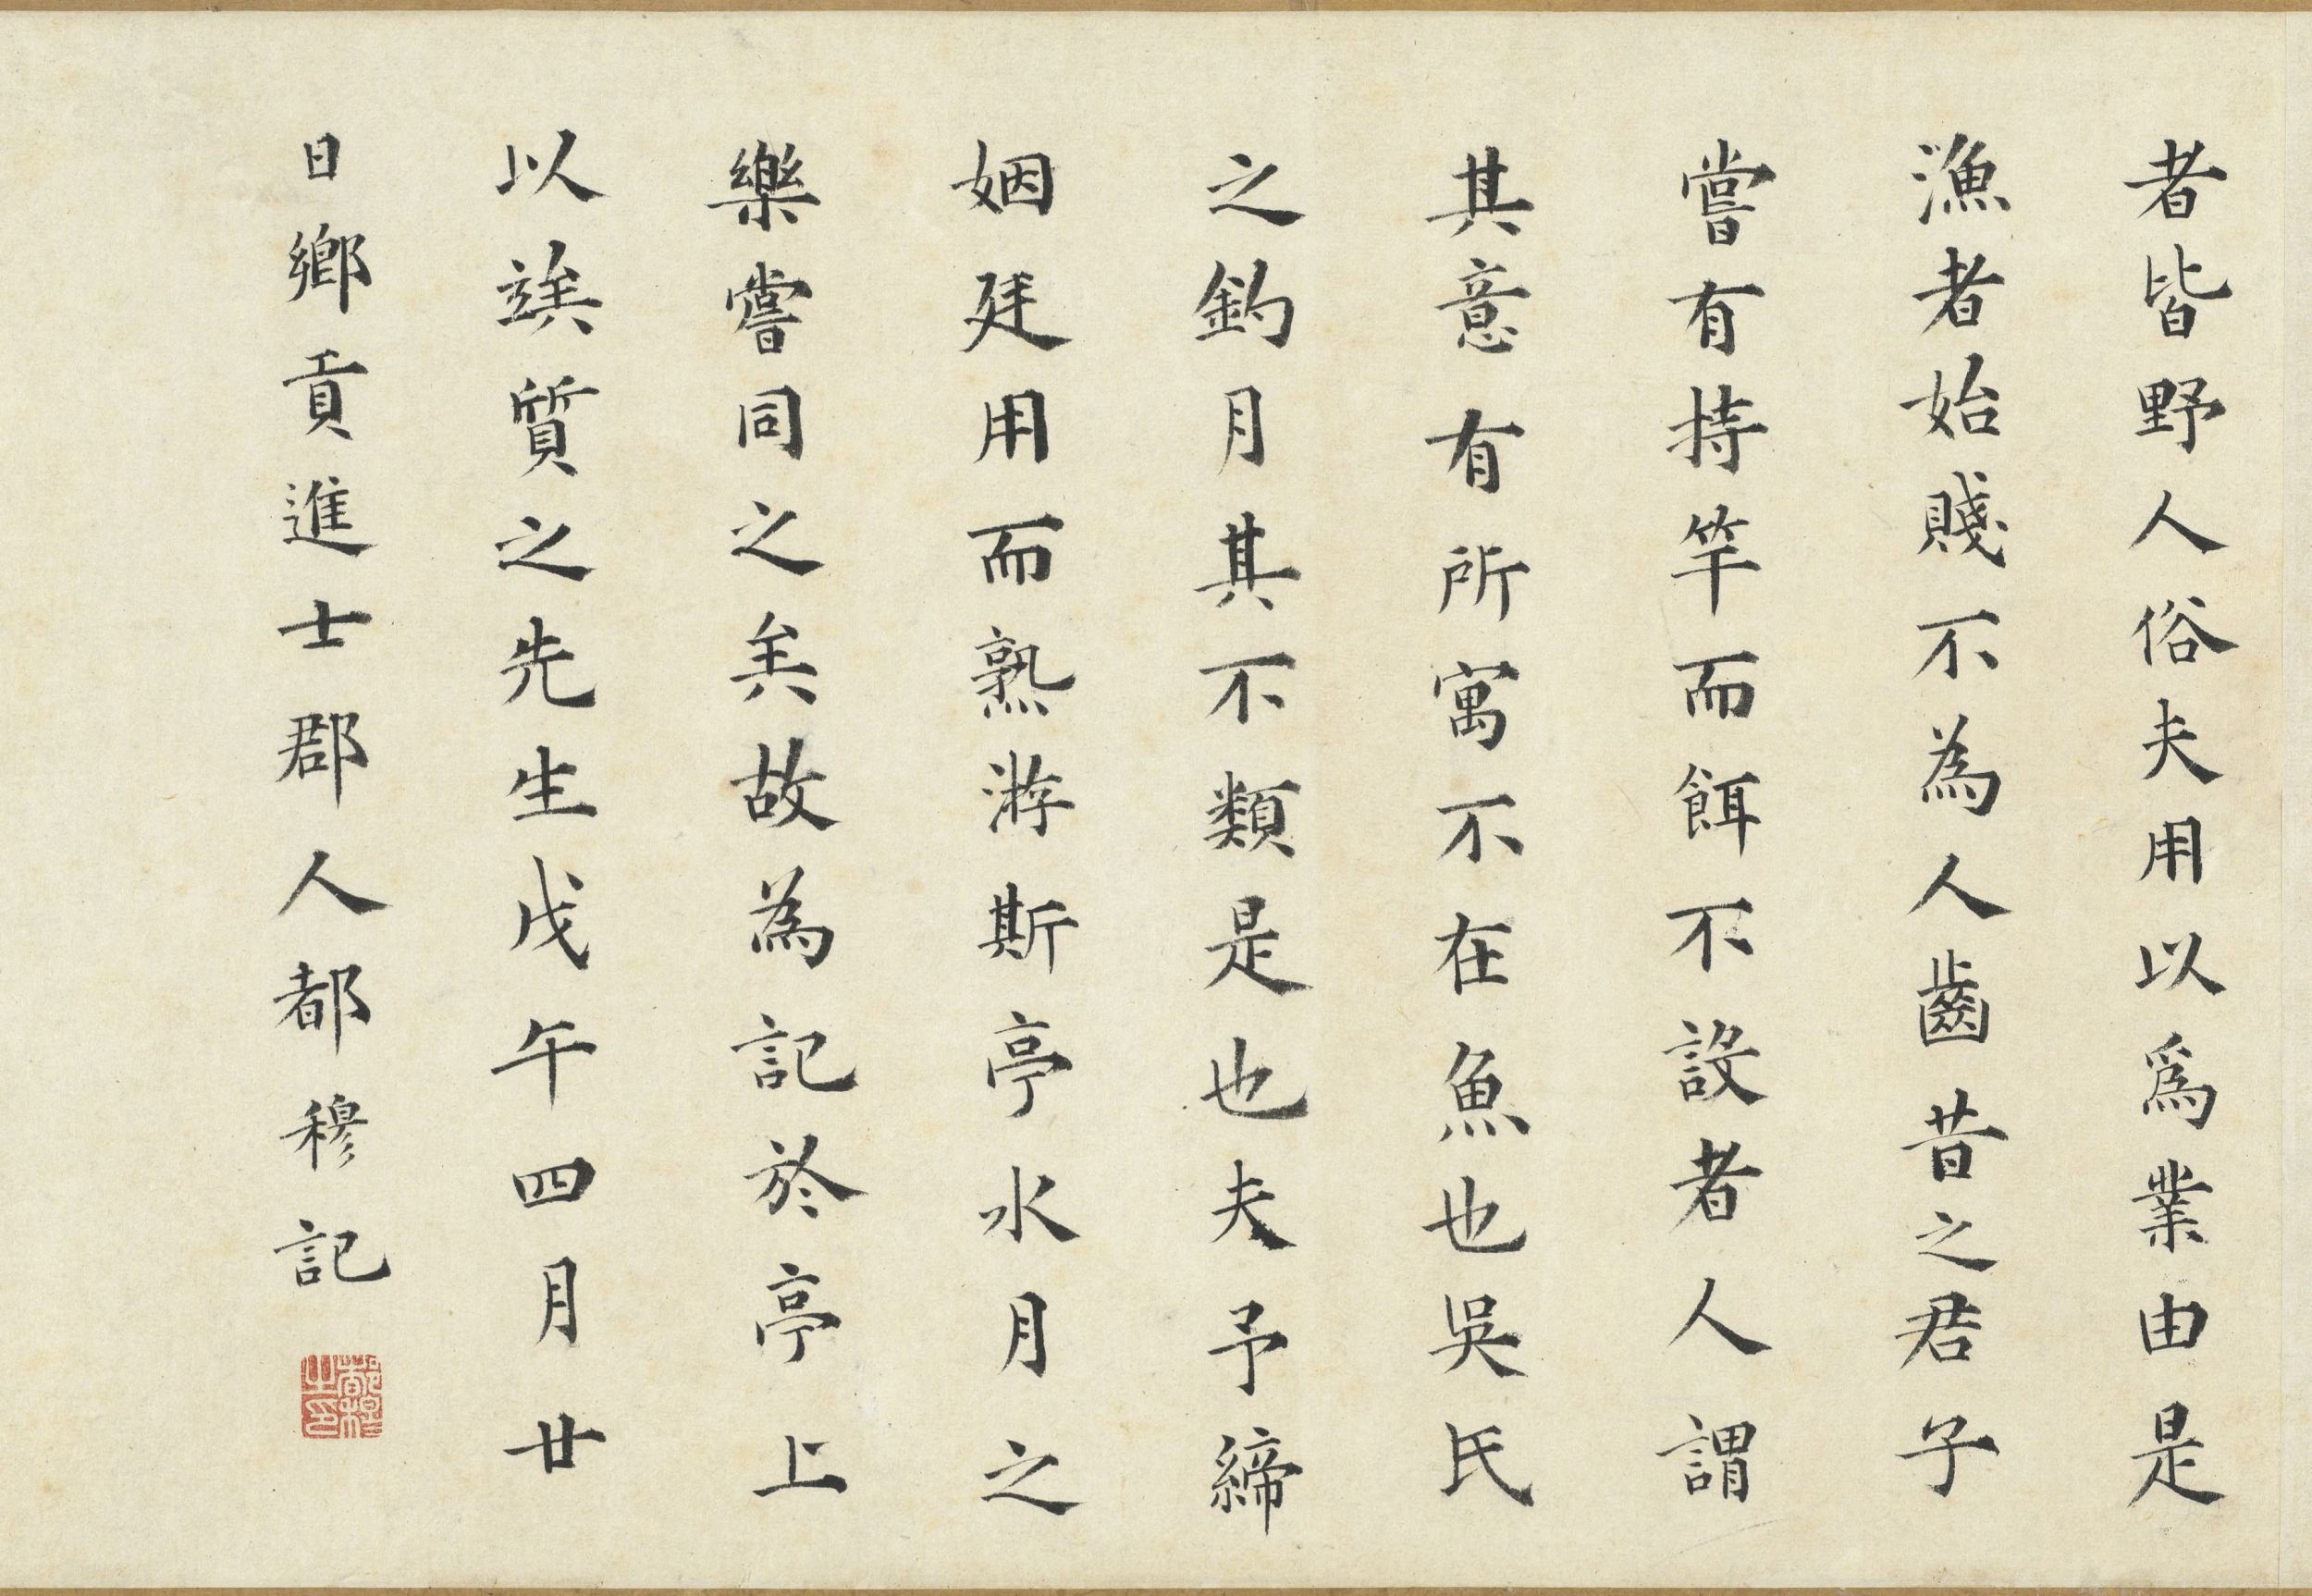 者皆野人俗夫用以爲業由是
漁者始賤不為人齒昔之君子
嘗有持竿而餌不設者人謂
其意有所寓不在魚也吳氏
之釣月其不類是也夫予締
姻廷用而熟游斯亭水月之
樂嘗同之矣故為記於亭上
以竢質之先生戊午四月廿
日鄉貢進士郡人都穆記
都穆之印